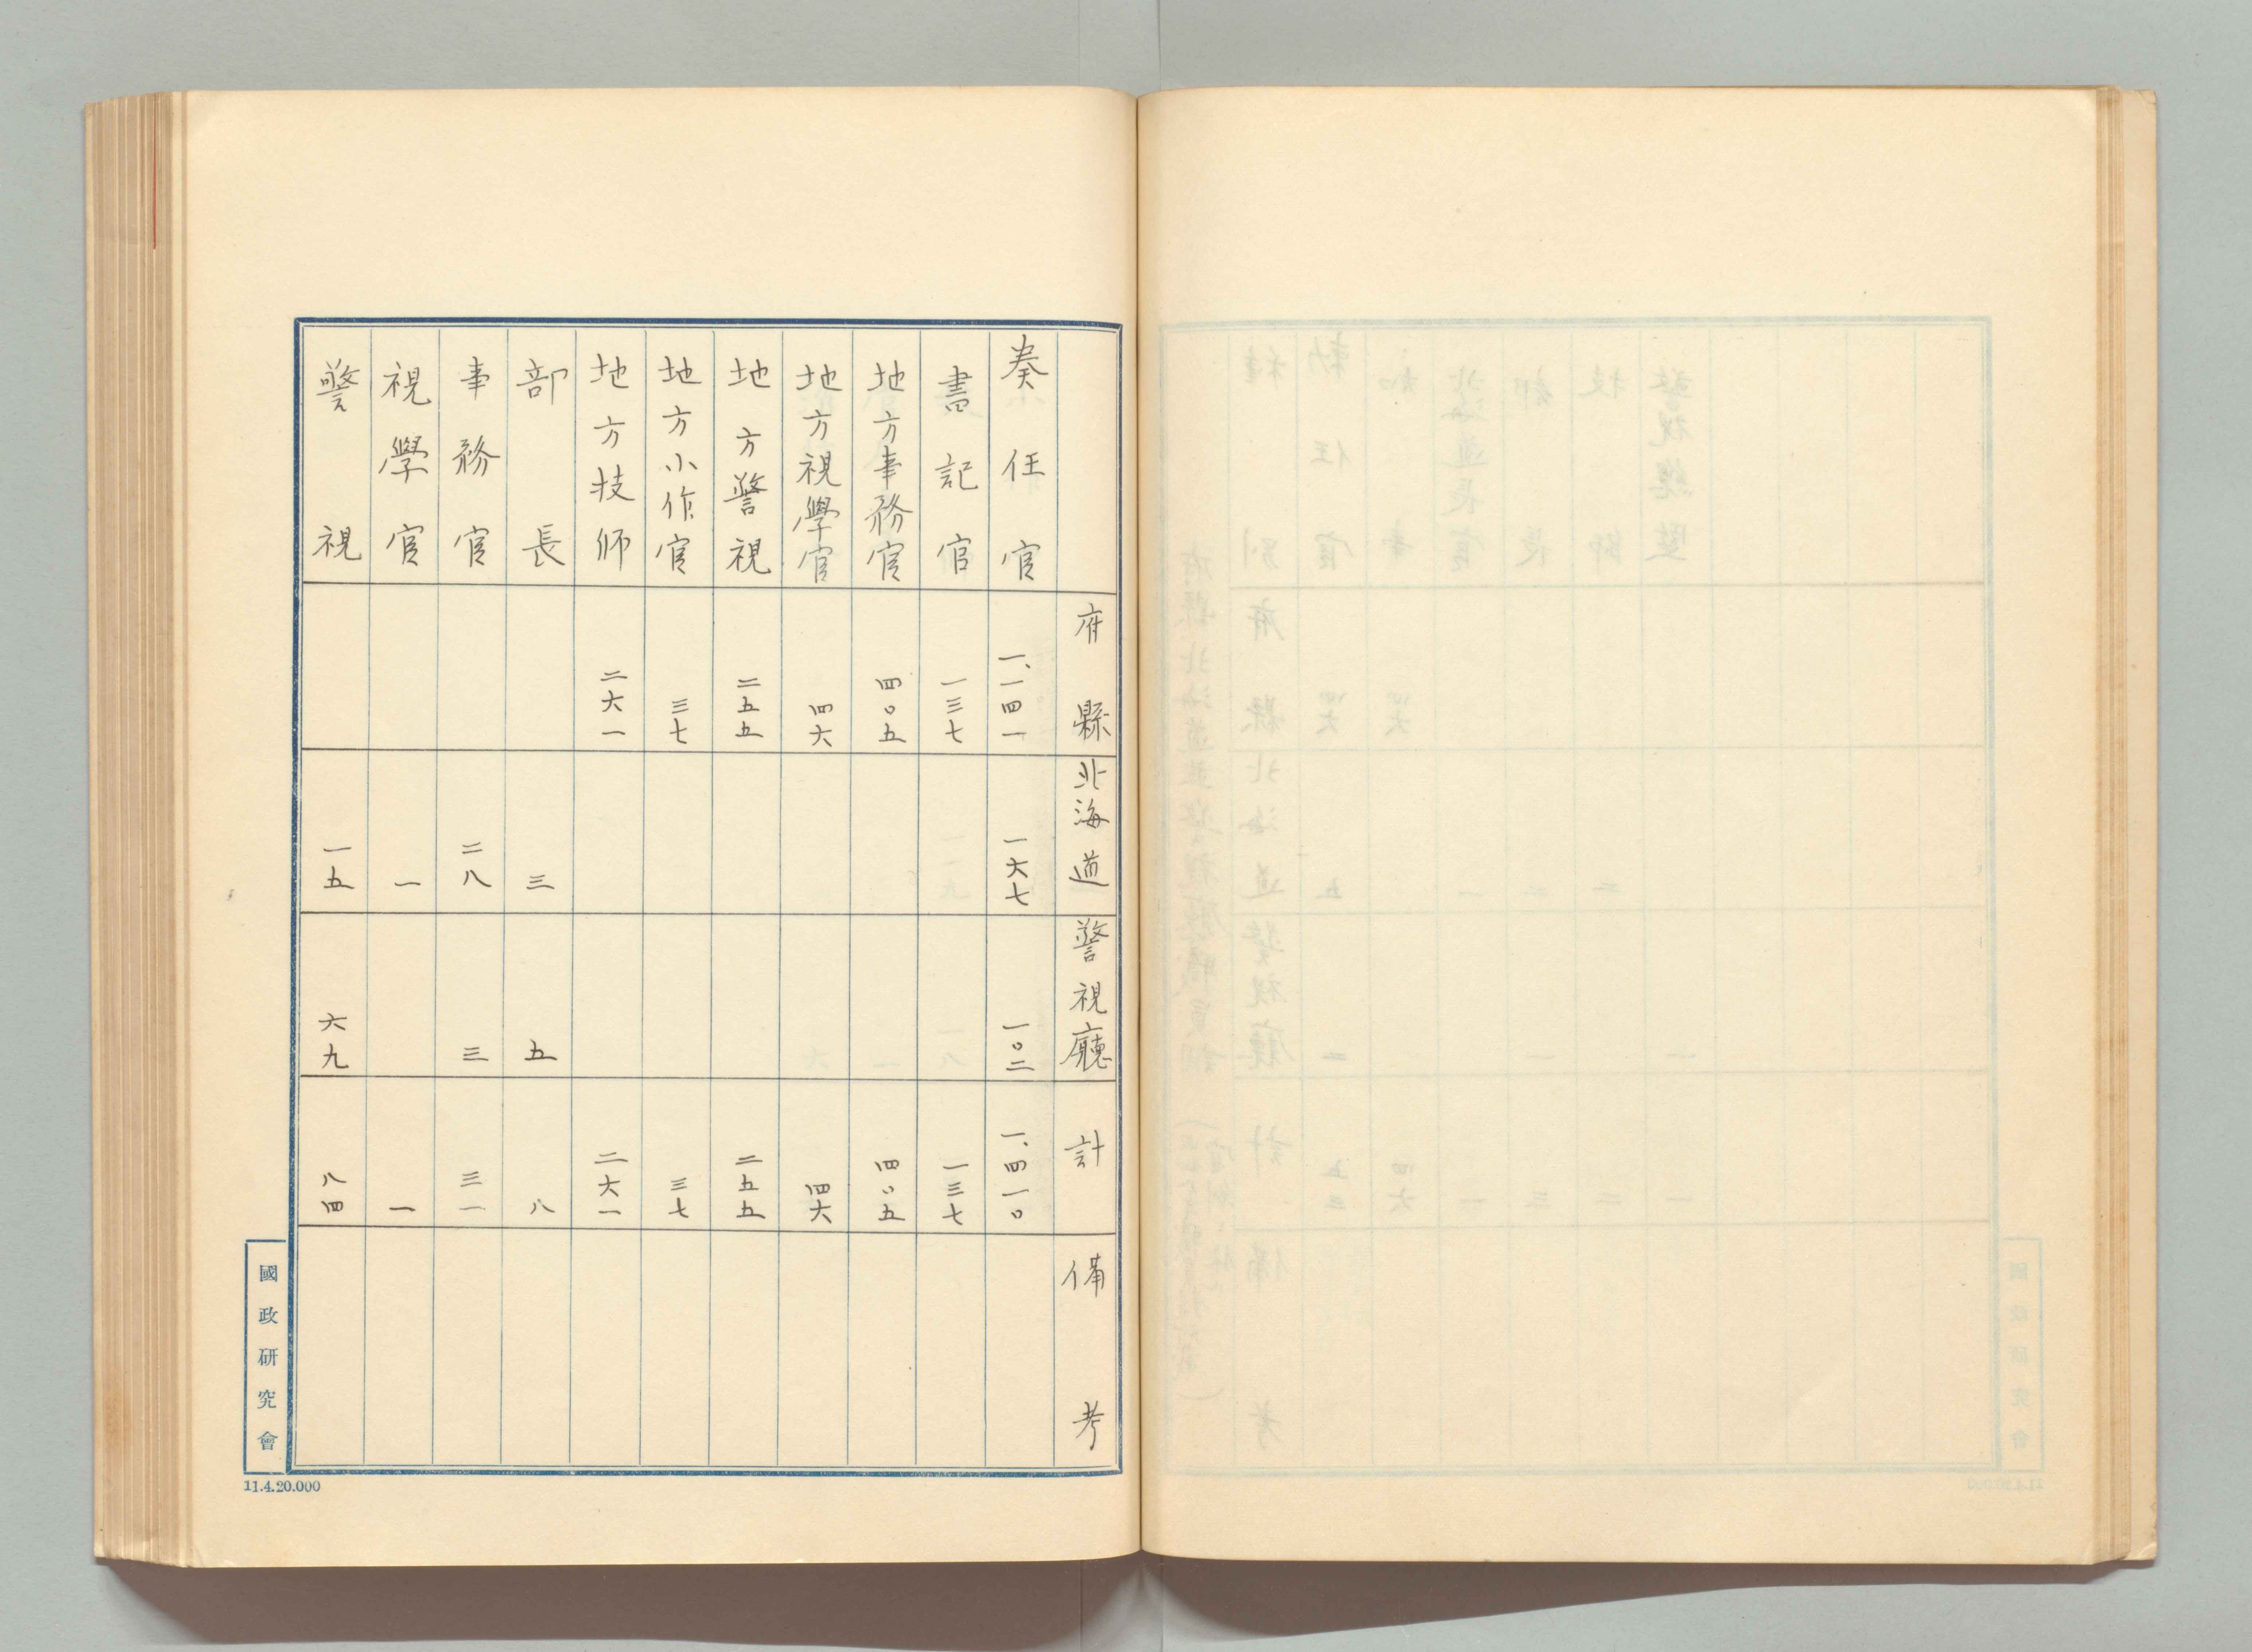 府縣 北海道 警視廳 計 備考
奏任官 一、一四一 一六七 一〇二 一、四一〇
書記官 一三七 一三七
地方事務官 四〇五 四〇五
地方視學官 四六 四六
地方警視 二五五 二五五
地方小作官 三七 三七
地方技師 二六一 二六一
部長 三 五 八
事務官 二八 三 三一
視學官 一 一
警視 一五 六九 八四
國政研究會
11.4.20.000